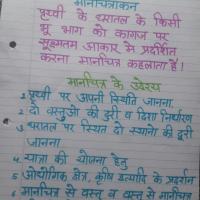 मानचित्रांकन
पृथ्वी के धरातल के किसी
भू भाग को कागज पर
सूक्ष्मतम आकार मे प्रदर्शित
करना मानचित्र कहलाता है।
मानचित्र के उद्देश्य
1. पृथ्वी पर अपनी स्थिति जानना
2. दो वस्तुओ की दुरी व दिशा निर्धारण
3. धरातल पर स्थित दो स्थानो की दुरी
जानना
4. यात्रा की योजना हेतु
5. औद्योगिक क्षेत्र, कृषि इत्यादि के प्रदर्शन
6 मानचित्र से वस्तु व वस्तु से मानचित्र